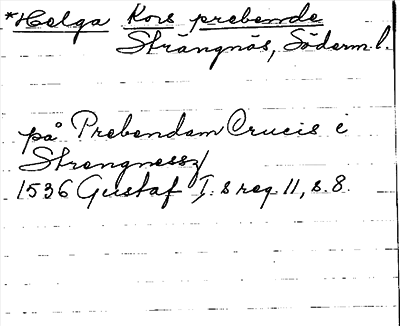 *Helga Kors prebende
Strängnäs, Söderm.l.
på Prebendam Crucis i
Strengnessz
1536 Gustaf I:s reg. 11, s. 8.